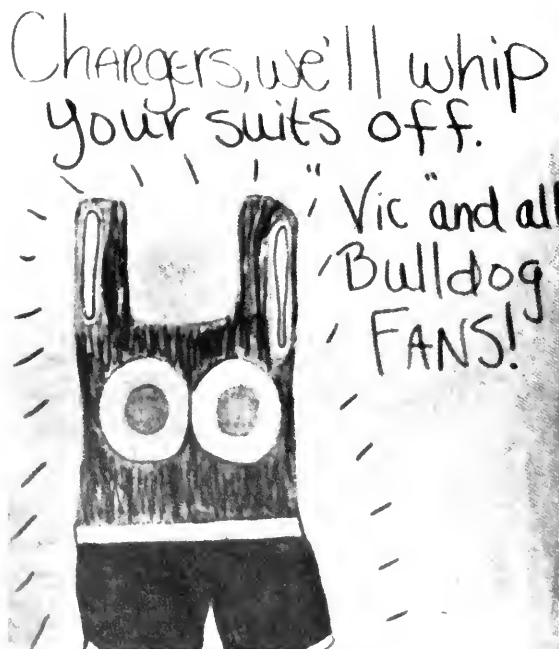 Chargers, we'll whip
your suits off.
"Vic" and all
Bulldog
FANS!